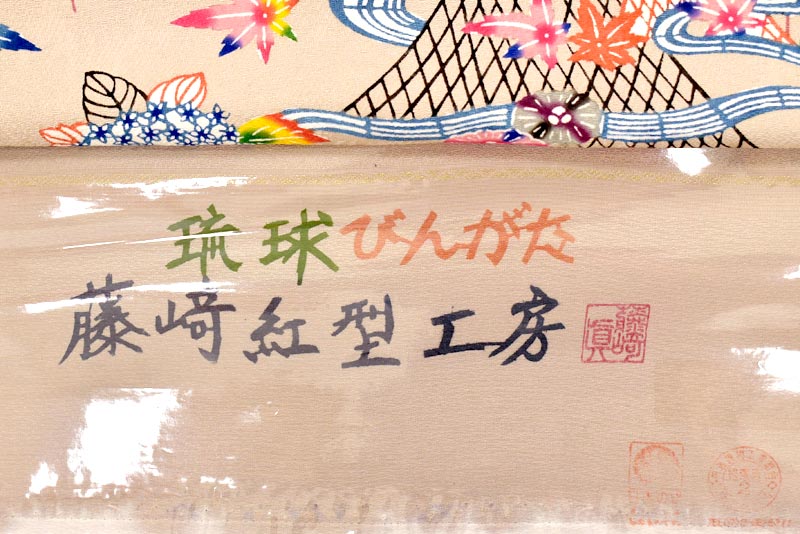 琉球びんがた
藤﨑紅型工房
藤﨑眞